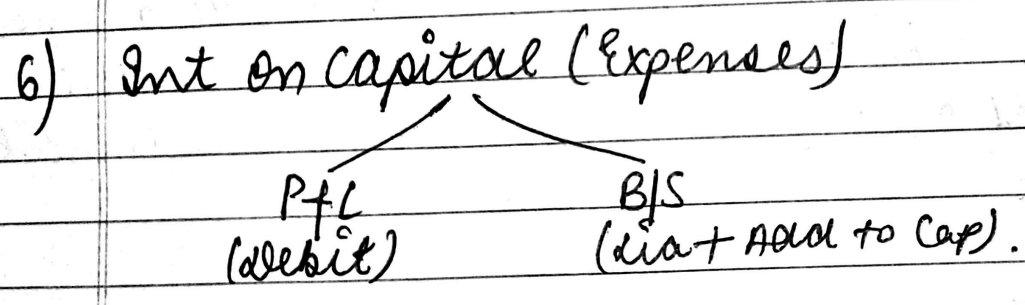 6) Int on Capital (Expenses)
P&L B/S
(Debit) (Lia + Add to Cap).